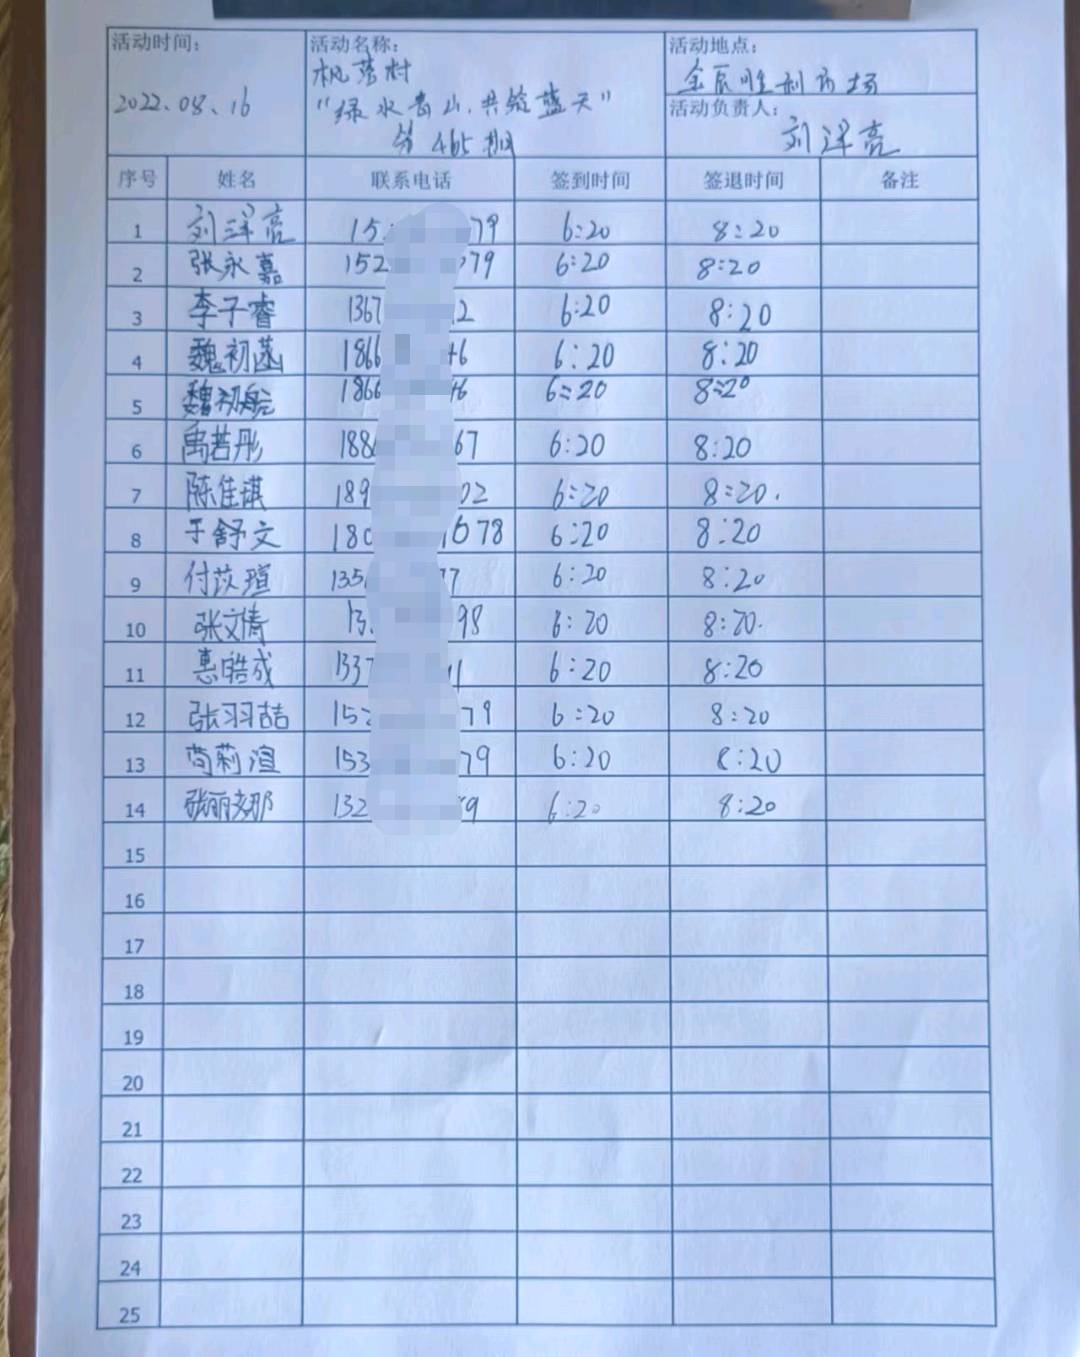 活动时间：
2022.08.16
活动名称：
枫落村
"绿水青山.共绘蓝天"
第465期
活动地点：
金辰胜利市场
活动负责人：
刘泽亮
序号 姓名 联系电话 签到时间 签退时间 备注
1 刘泽亮 15 79 6:20 8:20
2 张永嘉 152 79 6:20 8:20
3 李子睿 1367 2 6:20 8:20
4 魏初菡 1866 46 6:20 8:20
5 魏初 1866 46 6:20 8:20
6 禹若彤 188 67 6:20 8:20
7 陈佳琪 189 02 6:20 8:20.
8 于舒文 180 678 6:20 8:20
9 付苡瑄 135 77 6:20 8:20
10 张文倩 13 98 6:20 8:20.
11 惠皓成 1337 1 6:20 8:20
12 张羽喆 152 79 6:20 8:20
13 苘莉渲 153 79 6:20 8:20
14 张丽娜 132 9 6:20 8:20
15
16
17
18
19
20
21
22
23
24
25